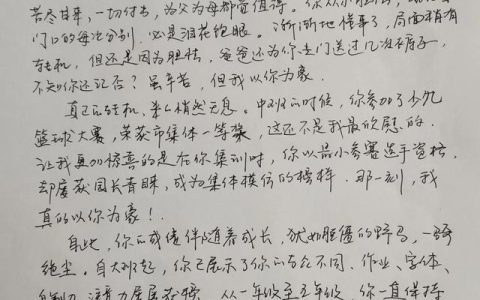 苦尽甘来,一切付出,为父为母都觉值得。你从小
门口的每次分别,必是泪花饱眼。渐渐地懂事了,局面稍有
转机,但还是因为胆怯,爸爸还为你去门送过几次裤子,
不知你还记否?虽辛苦,但我以你为豪。
真正的转机,来的悄然无息。中班的时候,你参加了少儿
篮球大赛,荣获市集体一等奖,这还不是我最欣慰的。
让我更加惊喜的是在你集训时,你以最小参赛选手资格,
却屡获园长青睐,成为集体模仿的榜样。那一刻,我
真的以你为豪!
自此,你的成绩伴随着成长,犹如脱僵的野马,一骑
绝尘。自大班起,你已展示了你的与众不同、作业、字体、
注意力屡屡获奖。从一年级至五年级,你一直保持